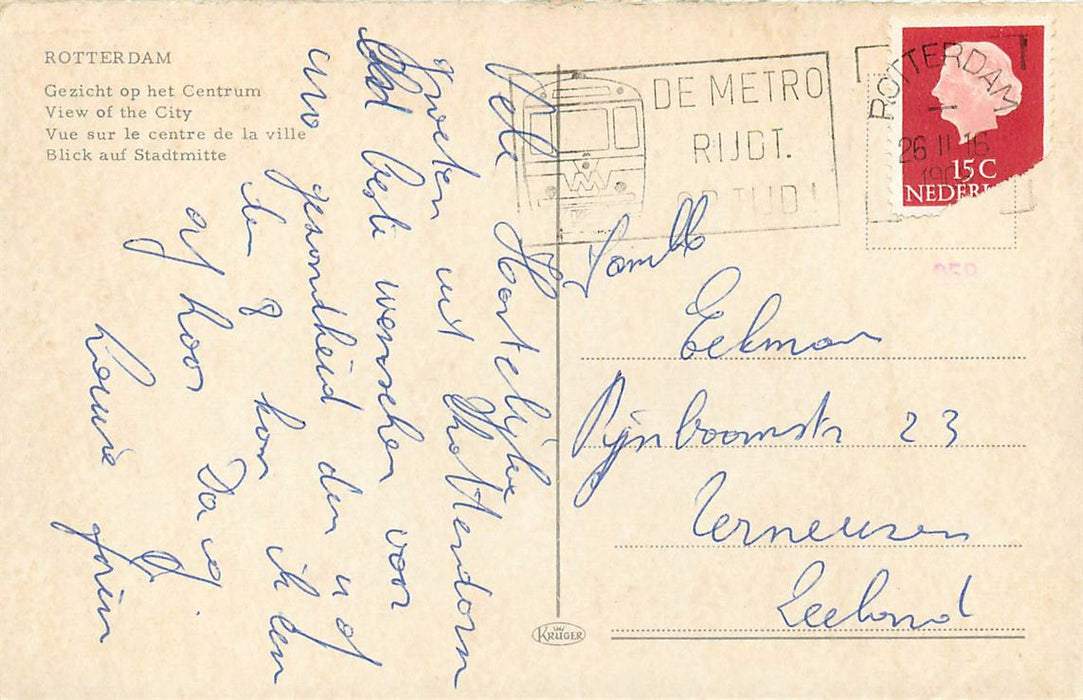 ROTTERDAM
Gezicht op het Centrum
View of the City
Vue sur le centre de la ville
Blick auf Stadtmitte
Vele Hartelijke
groeten uit Rotterdam
beste wenschen voor
uw gezondheid den
ik ben
of hoor Dag
Louise
KRÜGER
DE METRO
RIJDT.
OP TIJD!
ROTTERDAM
26 II 16
15C
NEDERL
Famille
Eekman
Pijnboomstr 23
Terneuzen
Zeeland